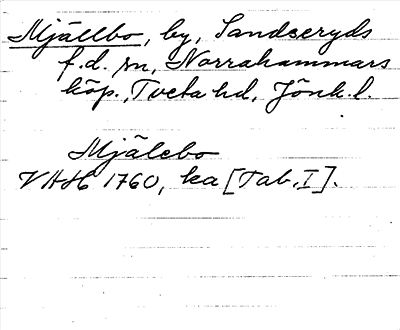 Mjällbo, by, Sandseryds
f.d. sn, Norrahammars
köp., Tveta hd, Jönk. l.
Mjälebo
VAH 1760, ka [Tab. I].